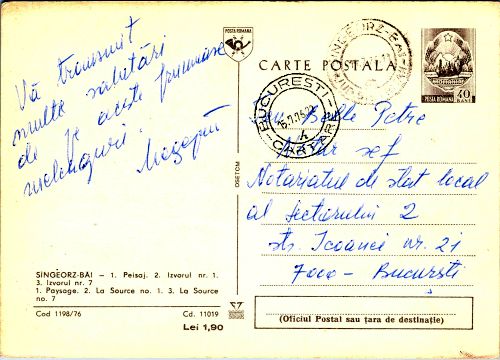 Vă transmit
multe salutări
de pe aceste frumoase
meleaguri.
SÎNGEORZ-BAI — 1. Peisaj. 2. Izvorul nr. 1.
3. Izvorul nr. 7
1. Paysage. 2. La Source no. 1. 3. La Source
no. 7
Cod 1198/76 Cd. 11019
Lei 1,90
OSETOM
POSTA ROMANA
CARTE POSTALA
POSTA ROMANA 40
SÎNGEORZ-BAI
BUCURESTI
CARTARE
Petre
Notar șef
Notariatul de stat local
al sectorului 2
str. Icoanei nr. 21
7000 - București
(Oficiul Postal sau țara de destinație)